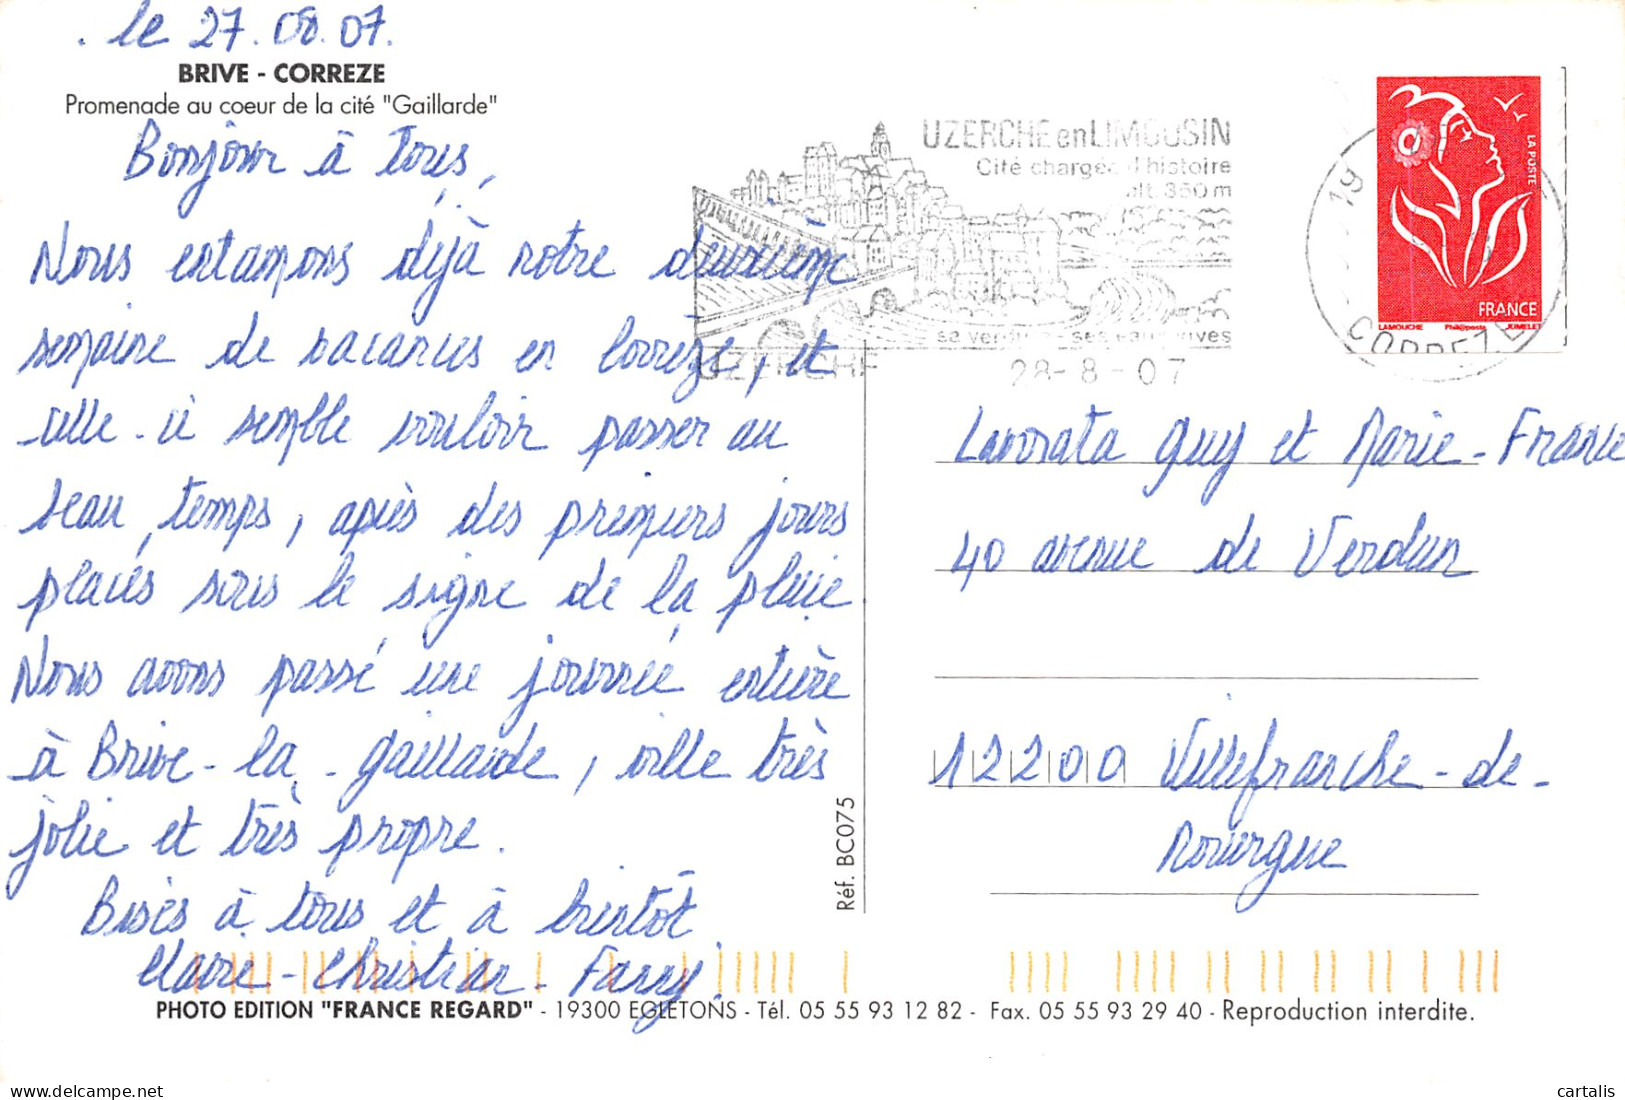 le 27.08.07.
BRIVE - CORREZE
Promenade au coeur de la cité "Gaillarde"
Bonjour à tous,
Nous entamons déjà notre deuxième
semaine de vacances en Corrèze, et
celle-ci semble vouloir passer au
beau temps, après des premiers jours
placés sous le signe de la pluie
Nous avons passé une journée entière
à Brive-la-gaillarde, ville très
jolie et très propre.
Bises à tous et à bientôt
Claire-Christian-Fanny.
UZERCHE en LIMOUSIN
Cité chargée d'histoire
alt. 350 m
ses eaux vives
UZERCHE
28-8-07
19
CORREZE
LA POSTE
FRANCE
LAMOUCHE Phil@poste JUMELET
Lavorata Guy et Marie-France
40 avenue de Verdun
12200 Villefranche-de-
Rouergue
Réf. BC075
PHOTO EDITION "FRANCE REGARD" - 19300 EGLETONS - Tél. 05 55 93 12 82 - Fax. 05 55 93 29 40 - Reproduction interdite.
cartalis